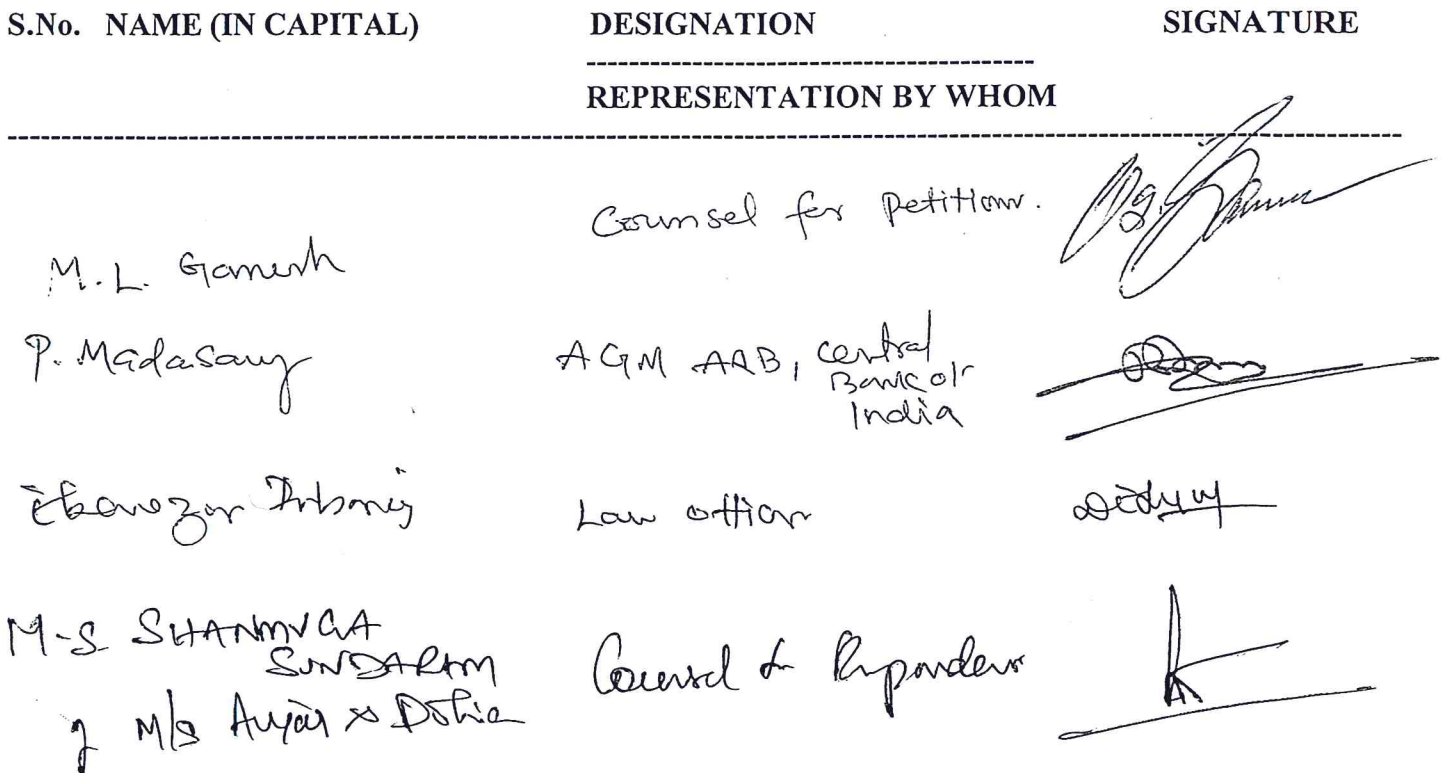 S.No. NAME (IN CAPITAL) DESIGNATION SIGNATURE
REPRESENTATION BY WHOM
M.L. Ganesh Counsel for Petitioner.
P. Madasamy AGM ARB, Central
Bank of
India
Law officer
M.S SHANMUGA
SUNDARAM Counsel for Respondent
M/s